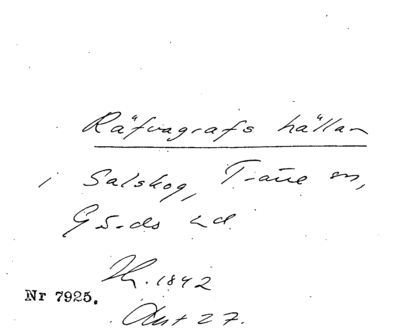 Räfvagrafs hällan
i Salskog, Träne sn,
Gärds hd
Th. 1842
Nr 7925.
Ant 27.